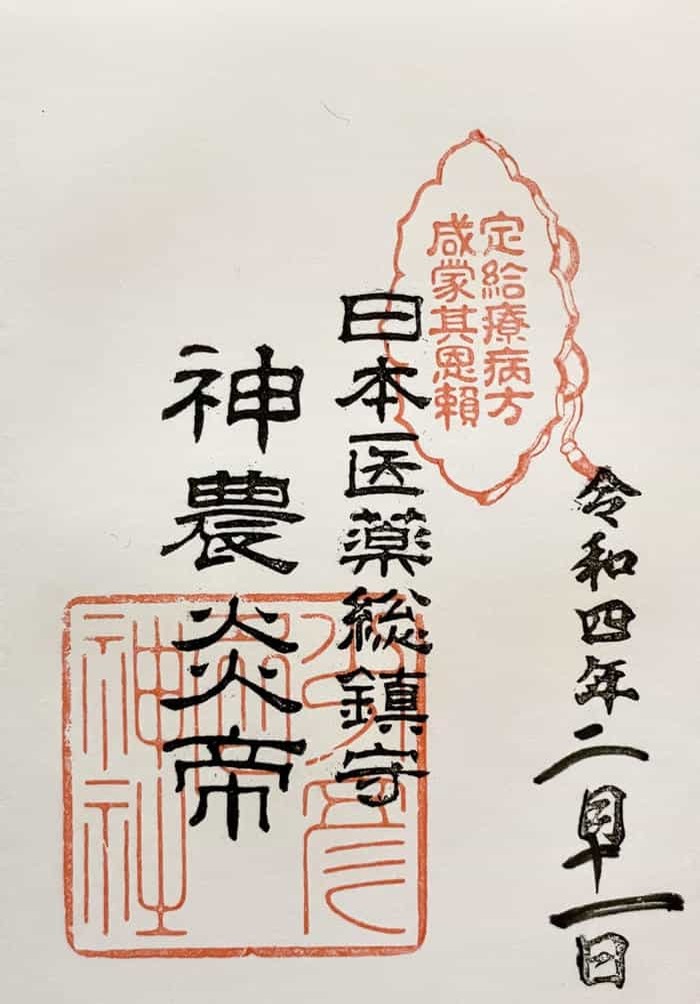 令和四年二月十一日
定給療病方
咸蒙其恩賴
日本医薬総鎮守
神農炎帝
神社